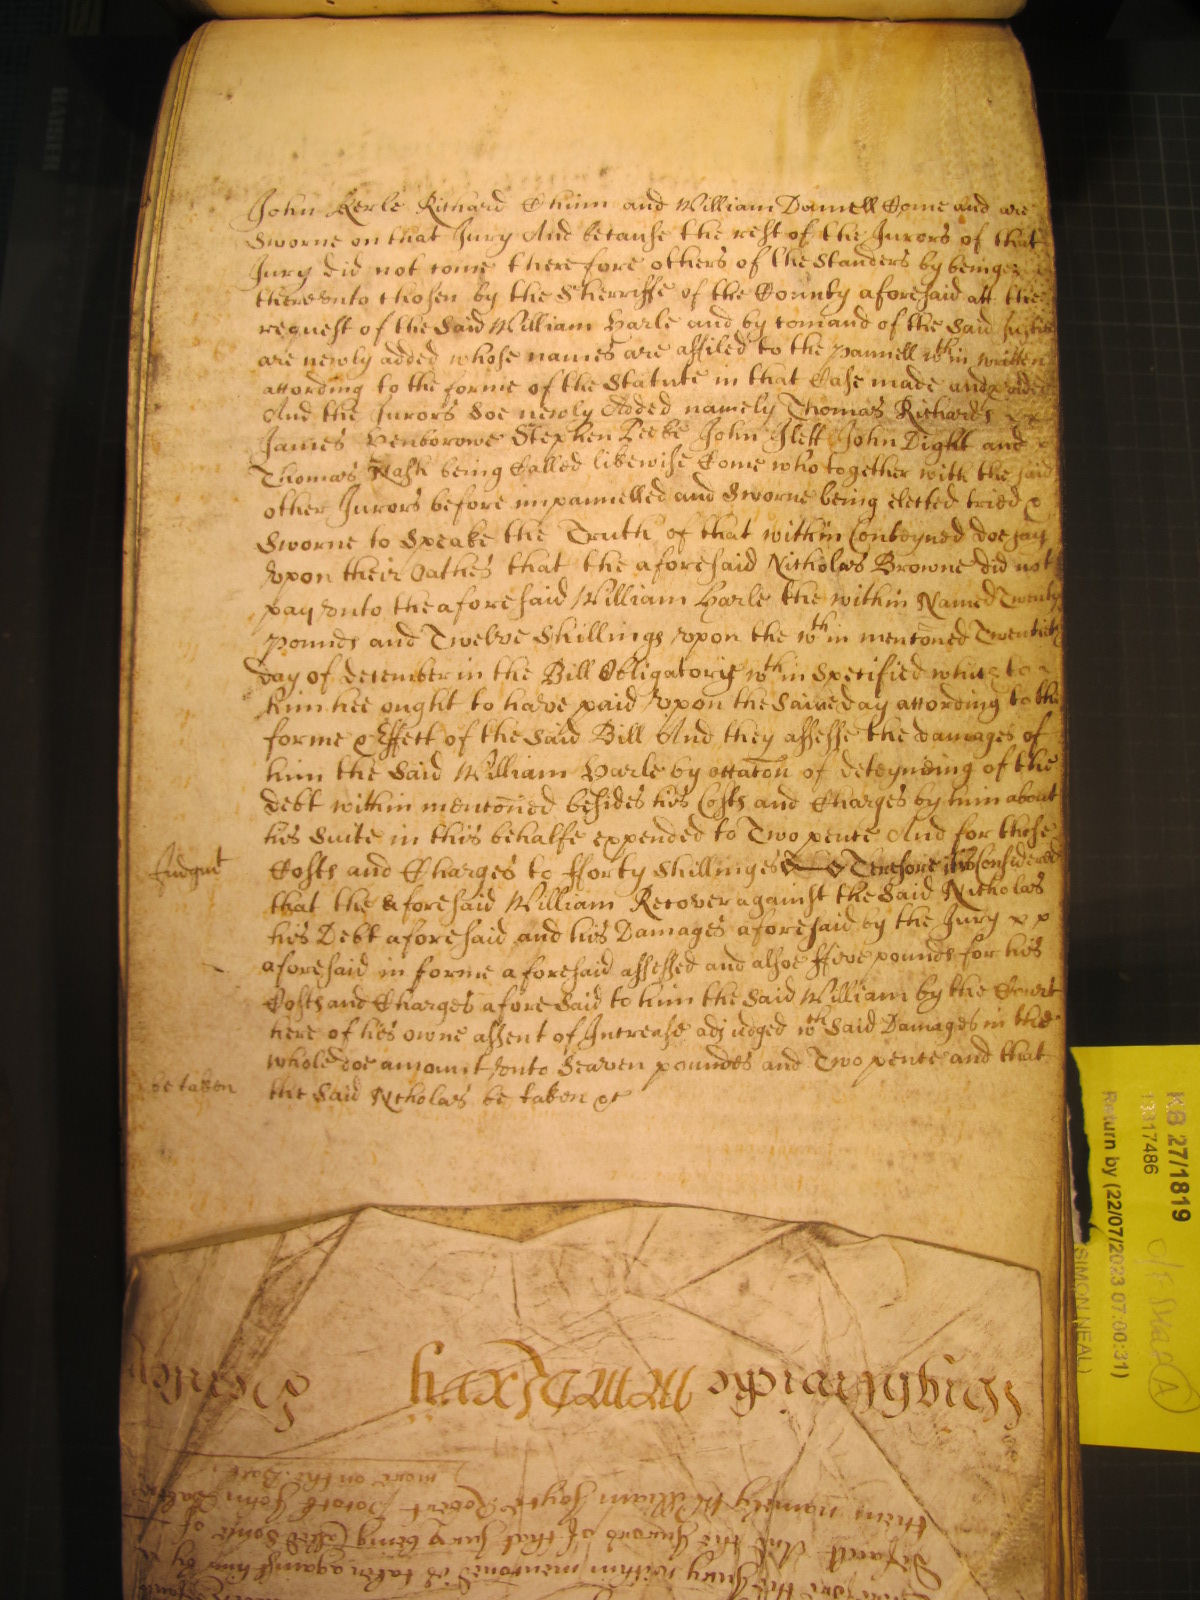 John Kerle Richard Chinn and William Dannell Come and are
Sworne on that Jury And because the rest of the Jurors of that
Jury did not come therefore others of the Standers by beinge
thereunto chosen by the Sherriffe of the County aforesaid att the
request of the Said William Harle and by comand of the Said Justice
are newly added whose names are affiled to the pannell wthin written
according to the forme of the Statute in that Case made and
And the Jurors Soe newly Added namely Thomas Richards
James Penborowe Stephen Beeke John Jleff John Dight and
Thomas Nash being Called likewise Come who together with the said
other Jurors before impannelled and Sworne being elected tried &
Sworne to Speake the Truth of that within Conteyned doe say
upon their Oathes that the aforesaid Nicholas Browne did not
pay unto the aforesaid William Harle the within Named Twenty
pounds and Twelve Shillings upon the wthin mentoned Twentieth
day of december in the Bill Obligatory wthin Specified which to
him hee ought to have paid upon the Same day according to the
forme & Effect of the Said Bill And they assesse the damages of
him the Said William Harle by occaton of deteyneing of the
debt within mentoned besides his Costs and Charges by him about
his Suite in this behalfe expended to Two pence And for those
Judgmt
Costs and Charges to fforty Shillinges Therefore itt is Considered
that the aforesaid William Recover against the Said Nicholas
his Debt aforesaid and his Damages aforesaid by the Jury
aforesaid in forme aforesaid assessed and alsoe ffive pounds for his
Costs and Charges aforeSaid to him the Said William by the Court
here of his owne assent of Increase adjudged wth Said Damages in the
whole doe amount unto Seaven poundes and Two pence and that
be taken
the Said Nicholas be taken &c
KB 27/1819
13317486
Return by (22/07/2023 07:00:31)
SIMON NEAL)
A
more on the Back
them namely William Robert John
Default And the Jurors of that Jury being Called Some of
Therefore the Jury within mentoned is taken against him by